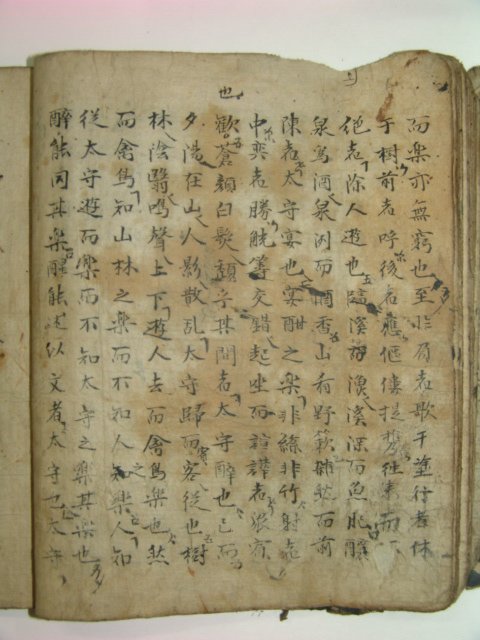 而樂亦無窮也至於負者歌于塗行者休
于樹前者呼後者應傴僂提携往来而不
絕者滁人遊也臨溪而漁溪深而魚肥釀
泉爲酒泉冽而酒香山肴野蔌雜然而前
陳者太守宴也宴酣之樂非絲非竹射者
中奕者勝觥籌交錯起坐而諠譁者衆賓
歡也蒼顔白髮頹乎其間者太守醉也已而
夕陽在山人影散乱太守歸而賓客從也樹
林陰翳鳴聲上下遊人去而禽鳥樂也然
而禽鳥知山林之樂而不知人之樂人知
從太守遊而樂而不知太守之樂其樂也
醉能同其樂醒能述以文者太守也太守